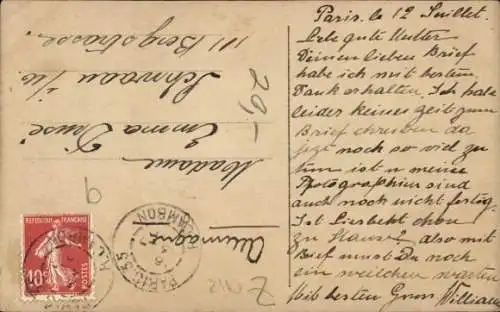 Paris. le 12 Juillet.
Lebe gute Mutter
Deinen lieben Brief
habe ich mit bestem
Dank erhalten. Ich habe
leider keines zeit zum
Brief chreiben da
jeze noch so viel zu
tun ist u meine
Photographien sind
auch noch nicht fertig.
Ist Liesbeht chon
zu Hause? also mit
Brief must Du noch
ein weilchen warten
Mit besten Gruss William
Madame
Emma
Schwaan i/M.
111 Bergstrasse.
Allemagne
20,-
9
REPUBLIQUE FRANÇAISE
10c
POSTES
PARIS 35
R. CAMBON